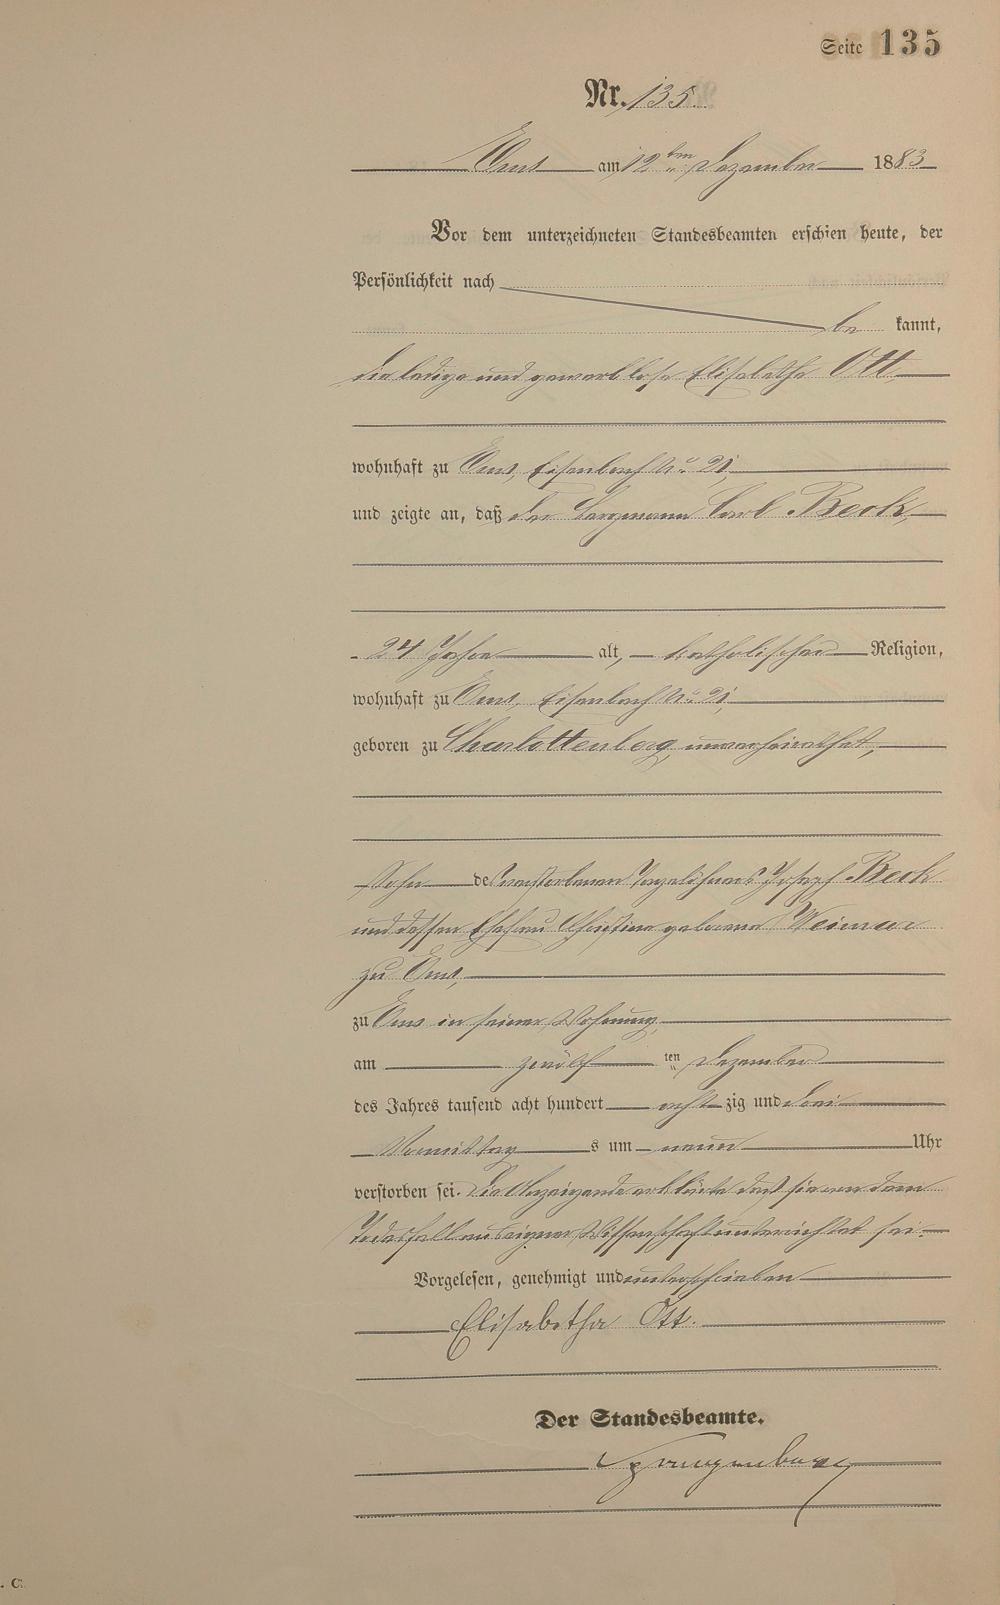 Seite 135
Nr. 135.
Ems am 12ten Dezember 1883
Vor dem unterzeichneten Standesbeamten erschien heute, der
Persönlichkeit nach
be kannt,
die ledige und gewerblose Elisabetha Ott
wohnhaft zu Ems, Eisenbach No. 21,
und zeigte an, daß der Bergmann Carl Beck,
24 Jahre alt, katholischer Religion,
wohnhaft zu Ems, Eisenbach No. 21,
geboren zu Charlottenberg, unverheirathet,
Sohn des verstorbenen Tagelöhners Joseph Beck
und dessen Ehefrau Christine geborene Weimar
zu Ems,
zu Ems in seiner Wohnung,
am zwölf ten Dezember
des Jahres tausend acht hundert acht zig und drei
Vormittag s um neun Uhr
verstorben sei. Die Anzeigende erklärte daß sie von dem
Todesfall aus eigener Wissenschaft unterrichtet sei.
Vorgelesen, genehmigt und unterschrieben
Elisabetha Ott.
Der Standesbeamte.
Spangenberg
. C.